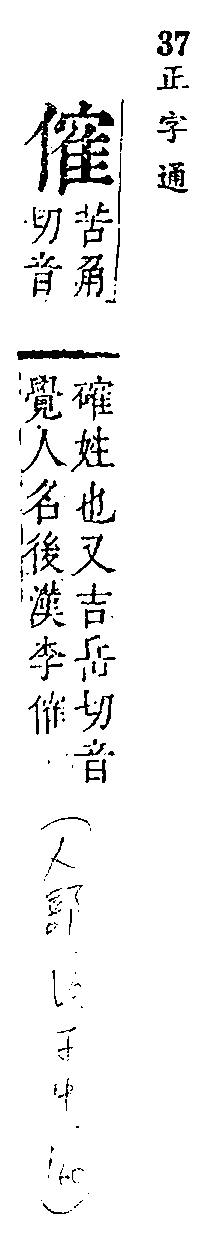 37
正字通
傕
苦角
切音
確姓也又吉岳切音
覺人名後漢李傕
(人部